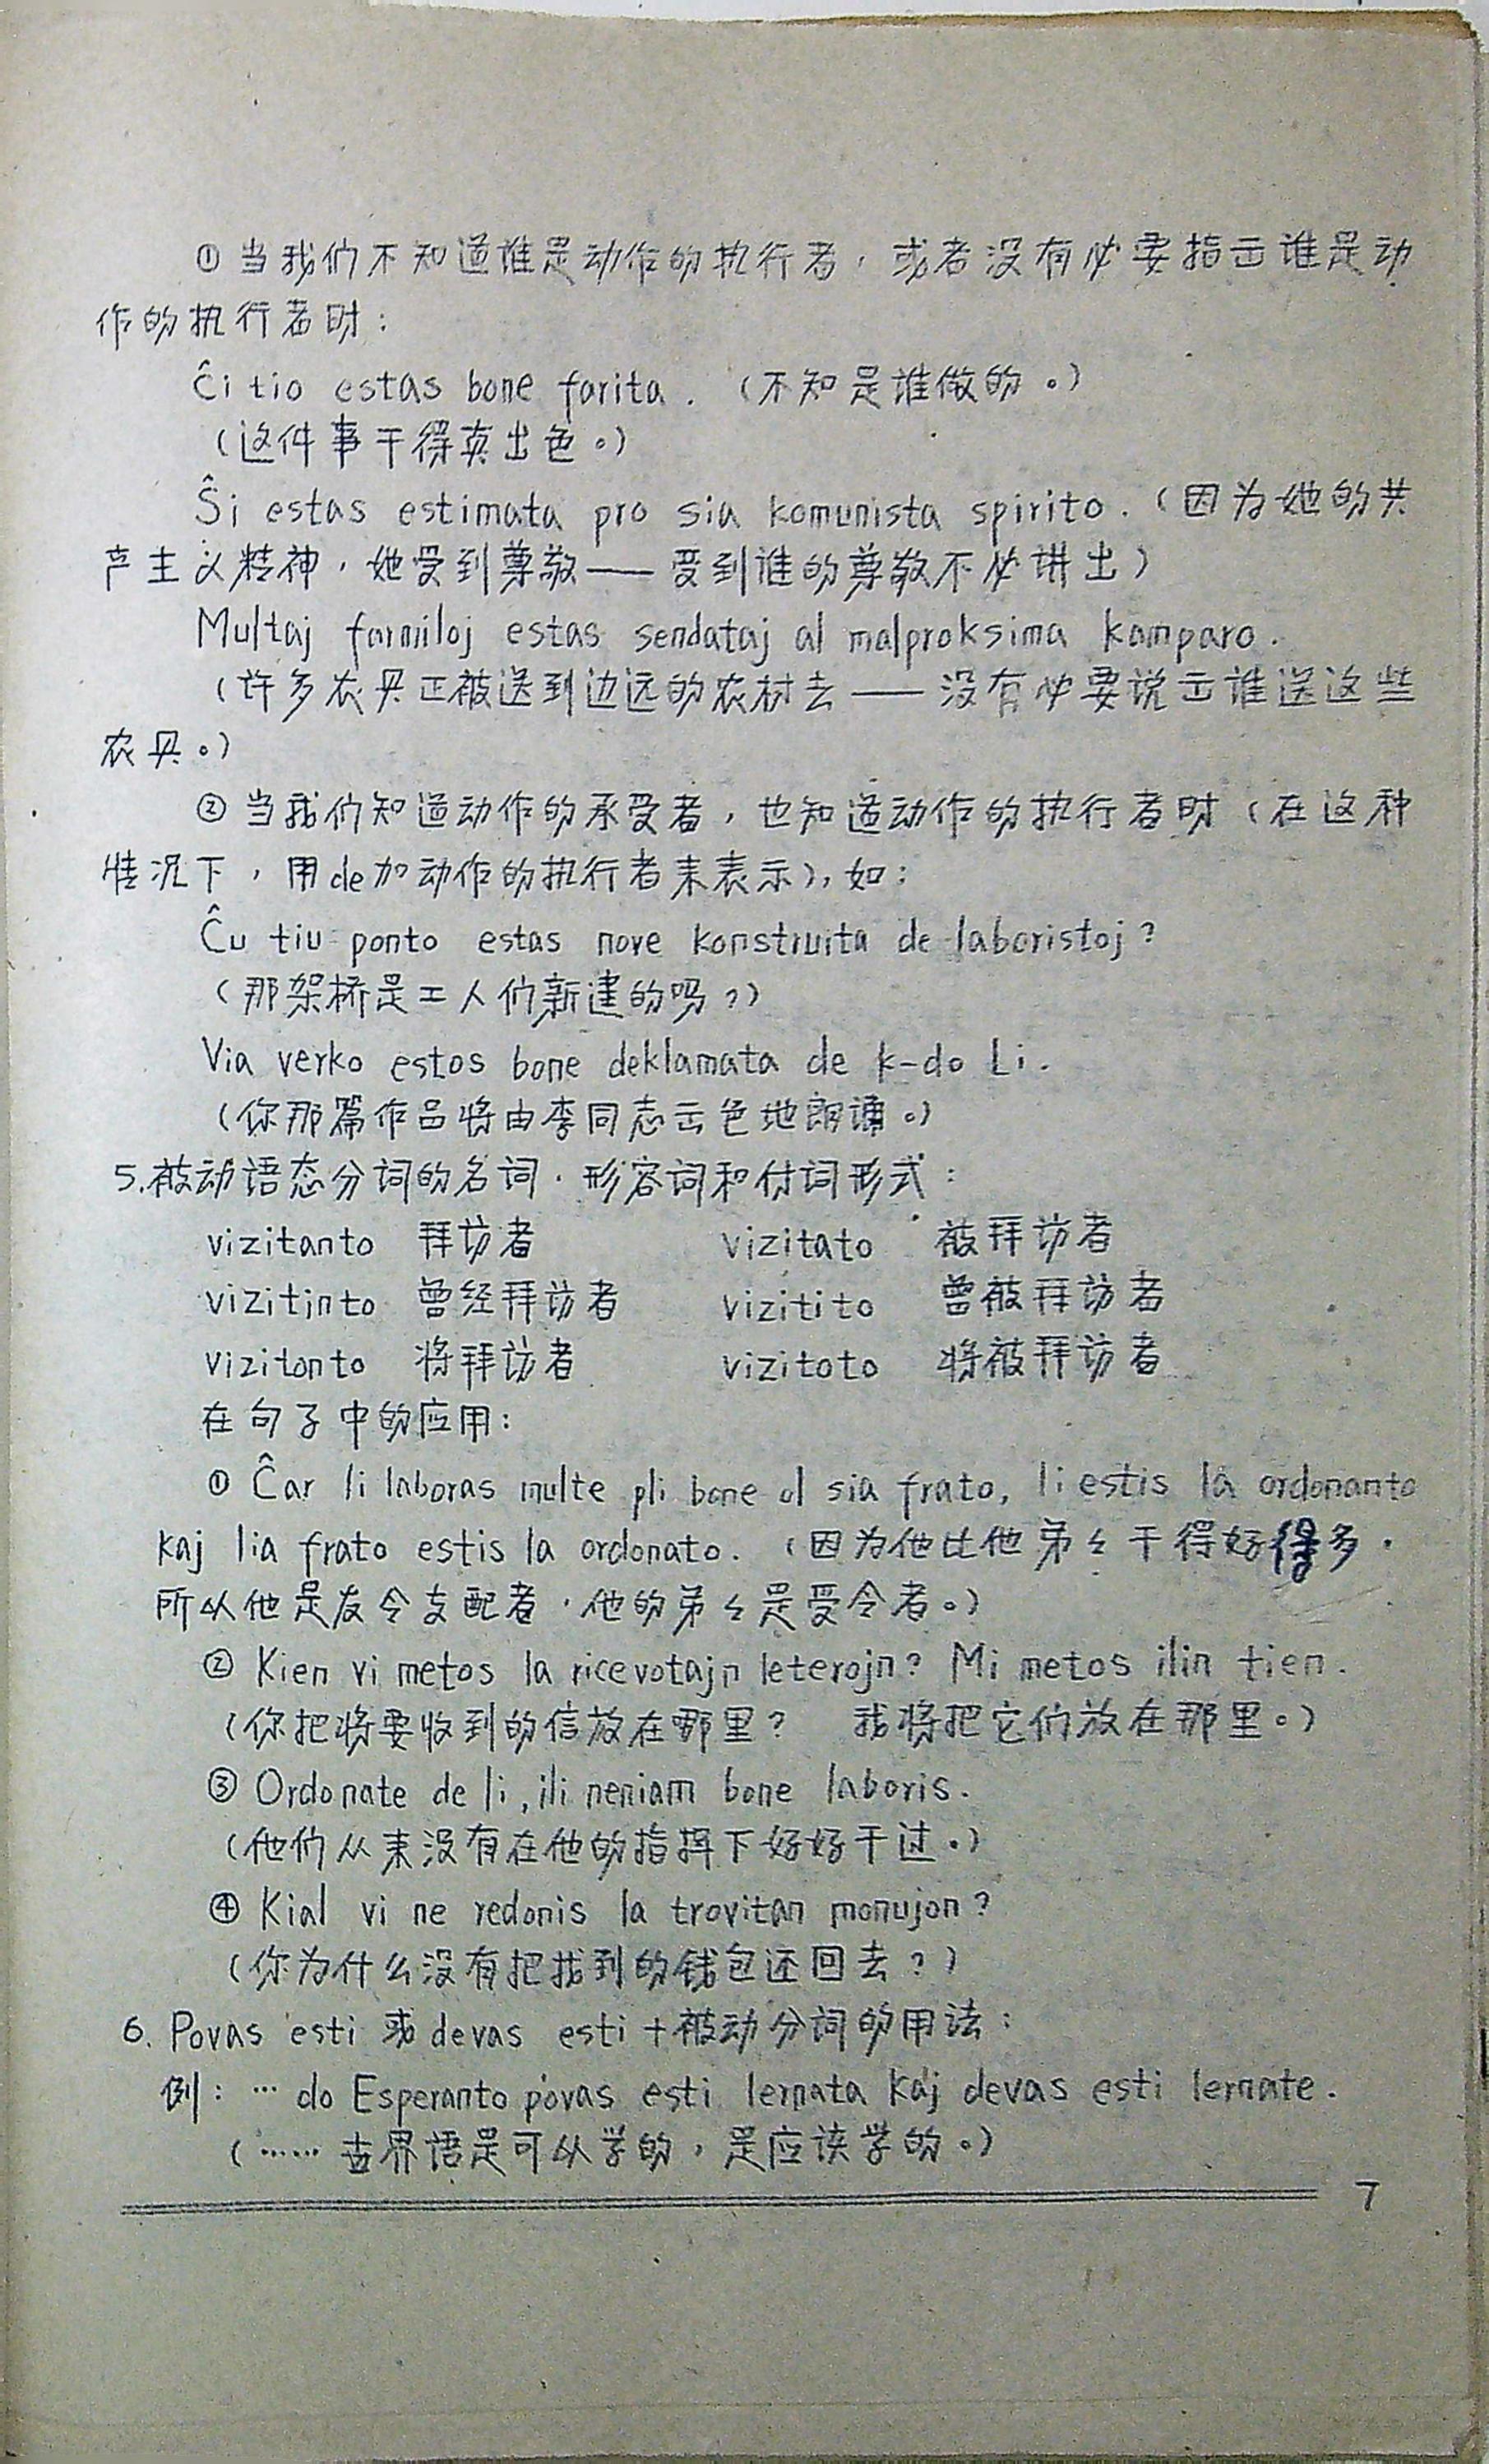 ①当我们不知道谁是动作的执行者，或者没有必要指出谁是动
作的执行者时：
Ĉi tio estas bone farita. （不知是谁做的。）
（这件事干得真出色。）
Ŝi estas estimata pro sia komunista spirito.（因为她的共
产主义精神，她受到尊敬——受到谁的尊敬不必讲出）
Multaj farmiloj estas sendataj al malproksima kamparo.
（许多农具正被送到边远的农村去——没有必要说出谁送这些
农具。）
②当我们知道动作的承受者，也知道动作的执行者时（在这种
情况下，用de加动作的执行者来表示），如：
Ĉu tiu ponto estas nove konstruita de laboristoj?
（那架桥是工人们新建的吗？）
Via verko estos bone deklamata de k-do Li.
（你那篇作品将由李同志出色地朗诵。）
5.被动语态分词的名词．形容词和付词形式：
vizitanto 拜访者 vizitato 被拜访者
vizitinto 曾经拜访者 vizitito 曾被拜访者
vizitonto 将拜访者 vizitoto 将被拜访者
在句子中的应用：
① Ĉar li laboras multe pli bone ol sia frato, li estis la ordonanto
kaj lia frato estis la ordonato.（因为他比他弟々干得好得多．
所以他是发令支配者．他的弟々是受令者。）
② Kien vi metos la ricevotajn leterojn? Mi metos ilin tien.
（你把将要收到的信放在哪里？ 我将把它们放在那里。）
③ Ordonate de li, ili neniam bone laboris.
（他们从来没有在他的指挥下好好干过。）
④ Kial vi ne redonis la trovitan monujon?
（你为什么没有把找到的钱包还回去？）
6. Povas esti 或 devas esti＋被动分词的用法：
例：… do Esperanto povas esti lernata kaj devas esti lernate.
（…… 世界语是可以学的，是应该学的。）
7